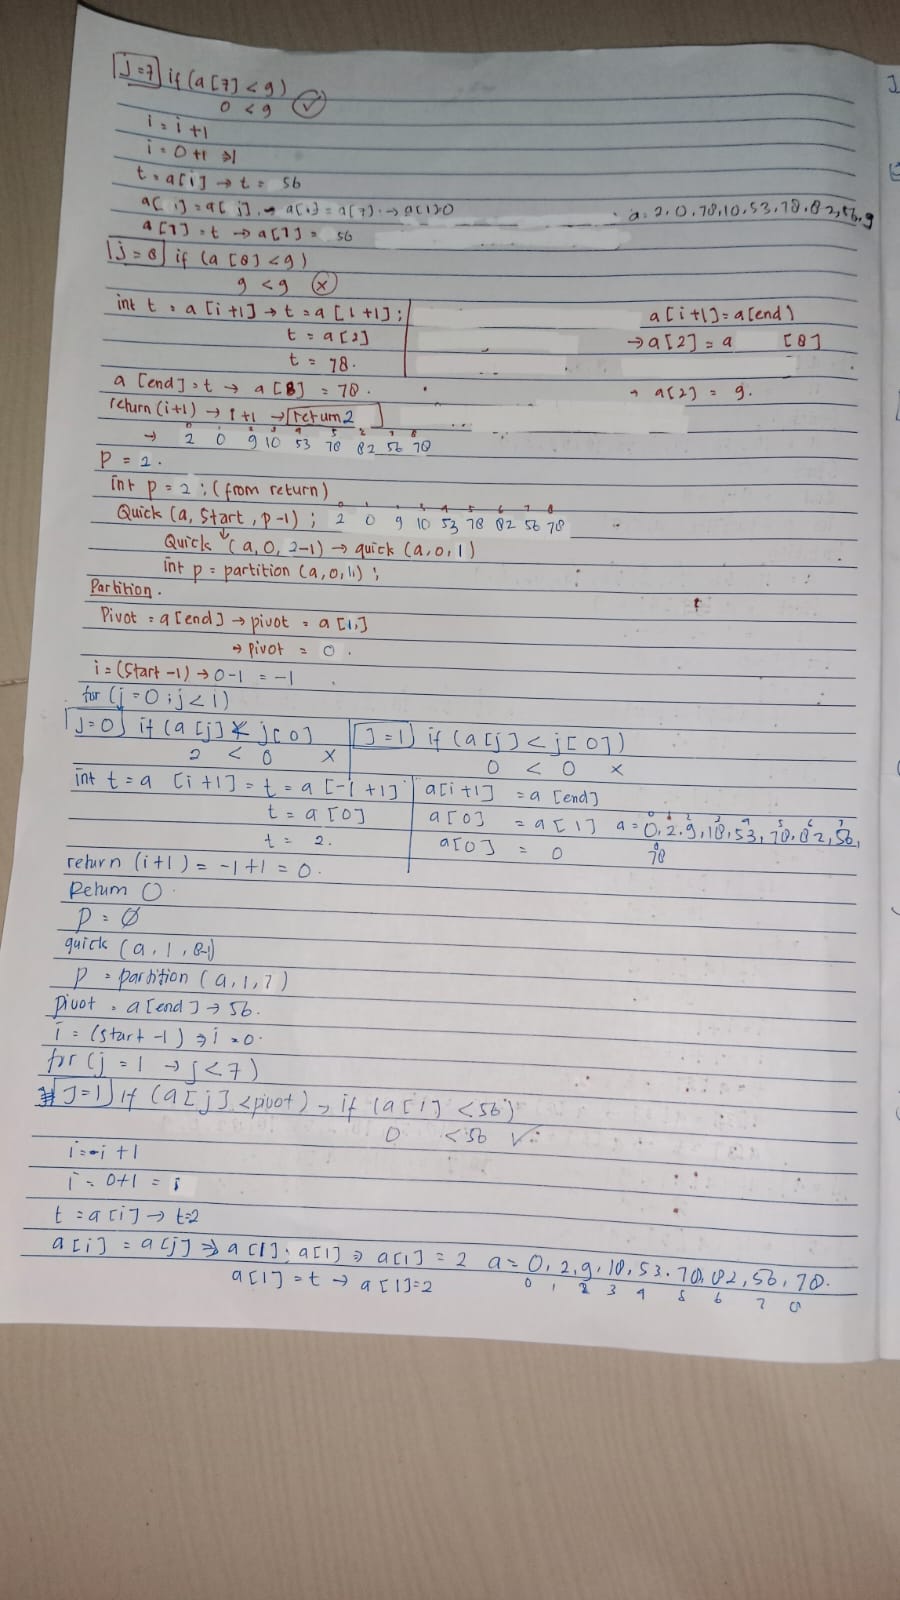 j=7 if (a[7] < 9)
0 < 9
i = i+1
i = 0+1 ⇒ 1
t = a[i] → t = 56
a[i] = a[j] → a[1] = a[7] → a[1]=0
a = 2,0,78,10,53,78,82,56,9
a[7] = t → a[7] = 56
j=8 if (a[8] < 9)
9 < 9 x
int t = a[i+1] → t = a[1+1]; a[i+1] = a[end]
t = a[2] → a[2] = a [8]
t = 78.
a[end] = t → a[8] = 78. → a[2] = 9.
return (i+1) → 1+1 → return 2
0 1 2 3 4 5 6 7 8
→ 2 0 9 10 53 78 82 56 78
P = 2.
int p = 2 ; (from return)
Quick (a, start, p-1) ; 2 0 9 10 53 78 82 56 78
Quick (a, 0, 2-1) → quick (a,0,1)
int p = partition (a,0,1) ;
Partition.
Pivot = a[end] → pivot = a[1]
→ pivot = 0.
i = (start -1) → 0-1 = -1
for (j = 0 ; j < 1)
j=0 if (a[j] < j[0] J=1 if (a[j] < j[0])
2 < 0 x 0 < 0 x
int t = a [i+1] = t = a[-1+1] a[i+1] = a[end]
t = a[0] a[0] = a[1] a = 0,2,9,10,53,78,82,56,
t = 2. a[0] = 0 78
return (i+1) = -1+1 = 0.
Return 0.
P = 0
quick (a, 1, 8-1)
P = partition (a,1,7)
pivot = a[end] → 56.
i = (start -1) → i = 0.
for (j = 1 → j < 7)
J=1 if (a[j] < pivot) → if (a[1] < 56)
0 < 56 ✓
i = i+1
i = 0+1 = 1
t = a[i] → t=2
a[i] = a[j] ⇒ a[1] = a[1] ⇒ a[1] = 2 a = 0,2,9,10,53,78,82,56,78.
a[1] = t → a[1]=2 0 1 2 3 4 5 6 7 8